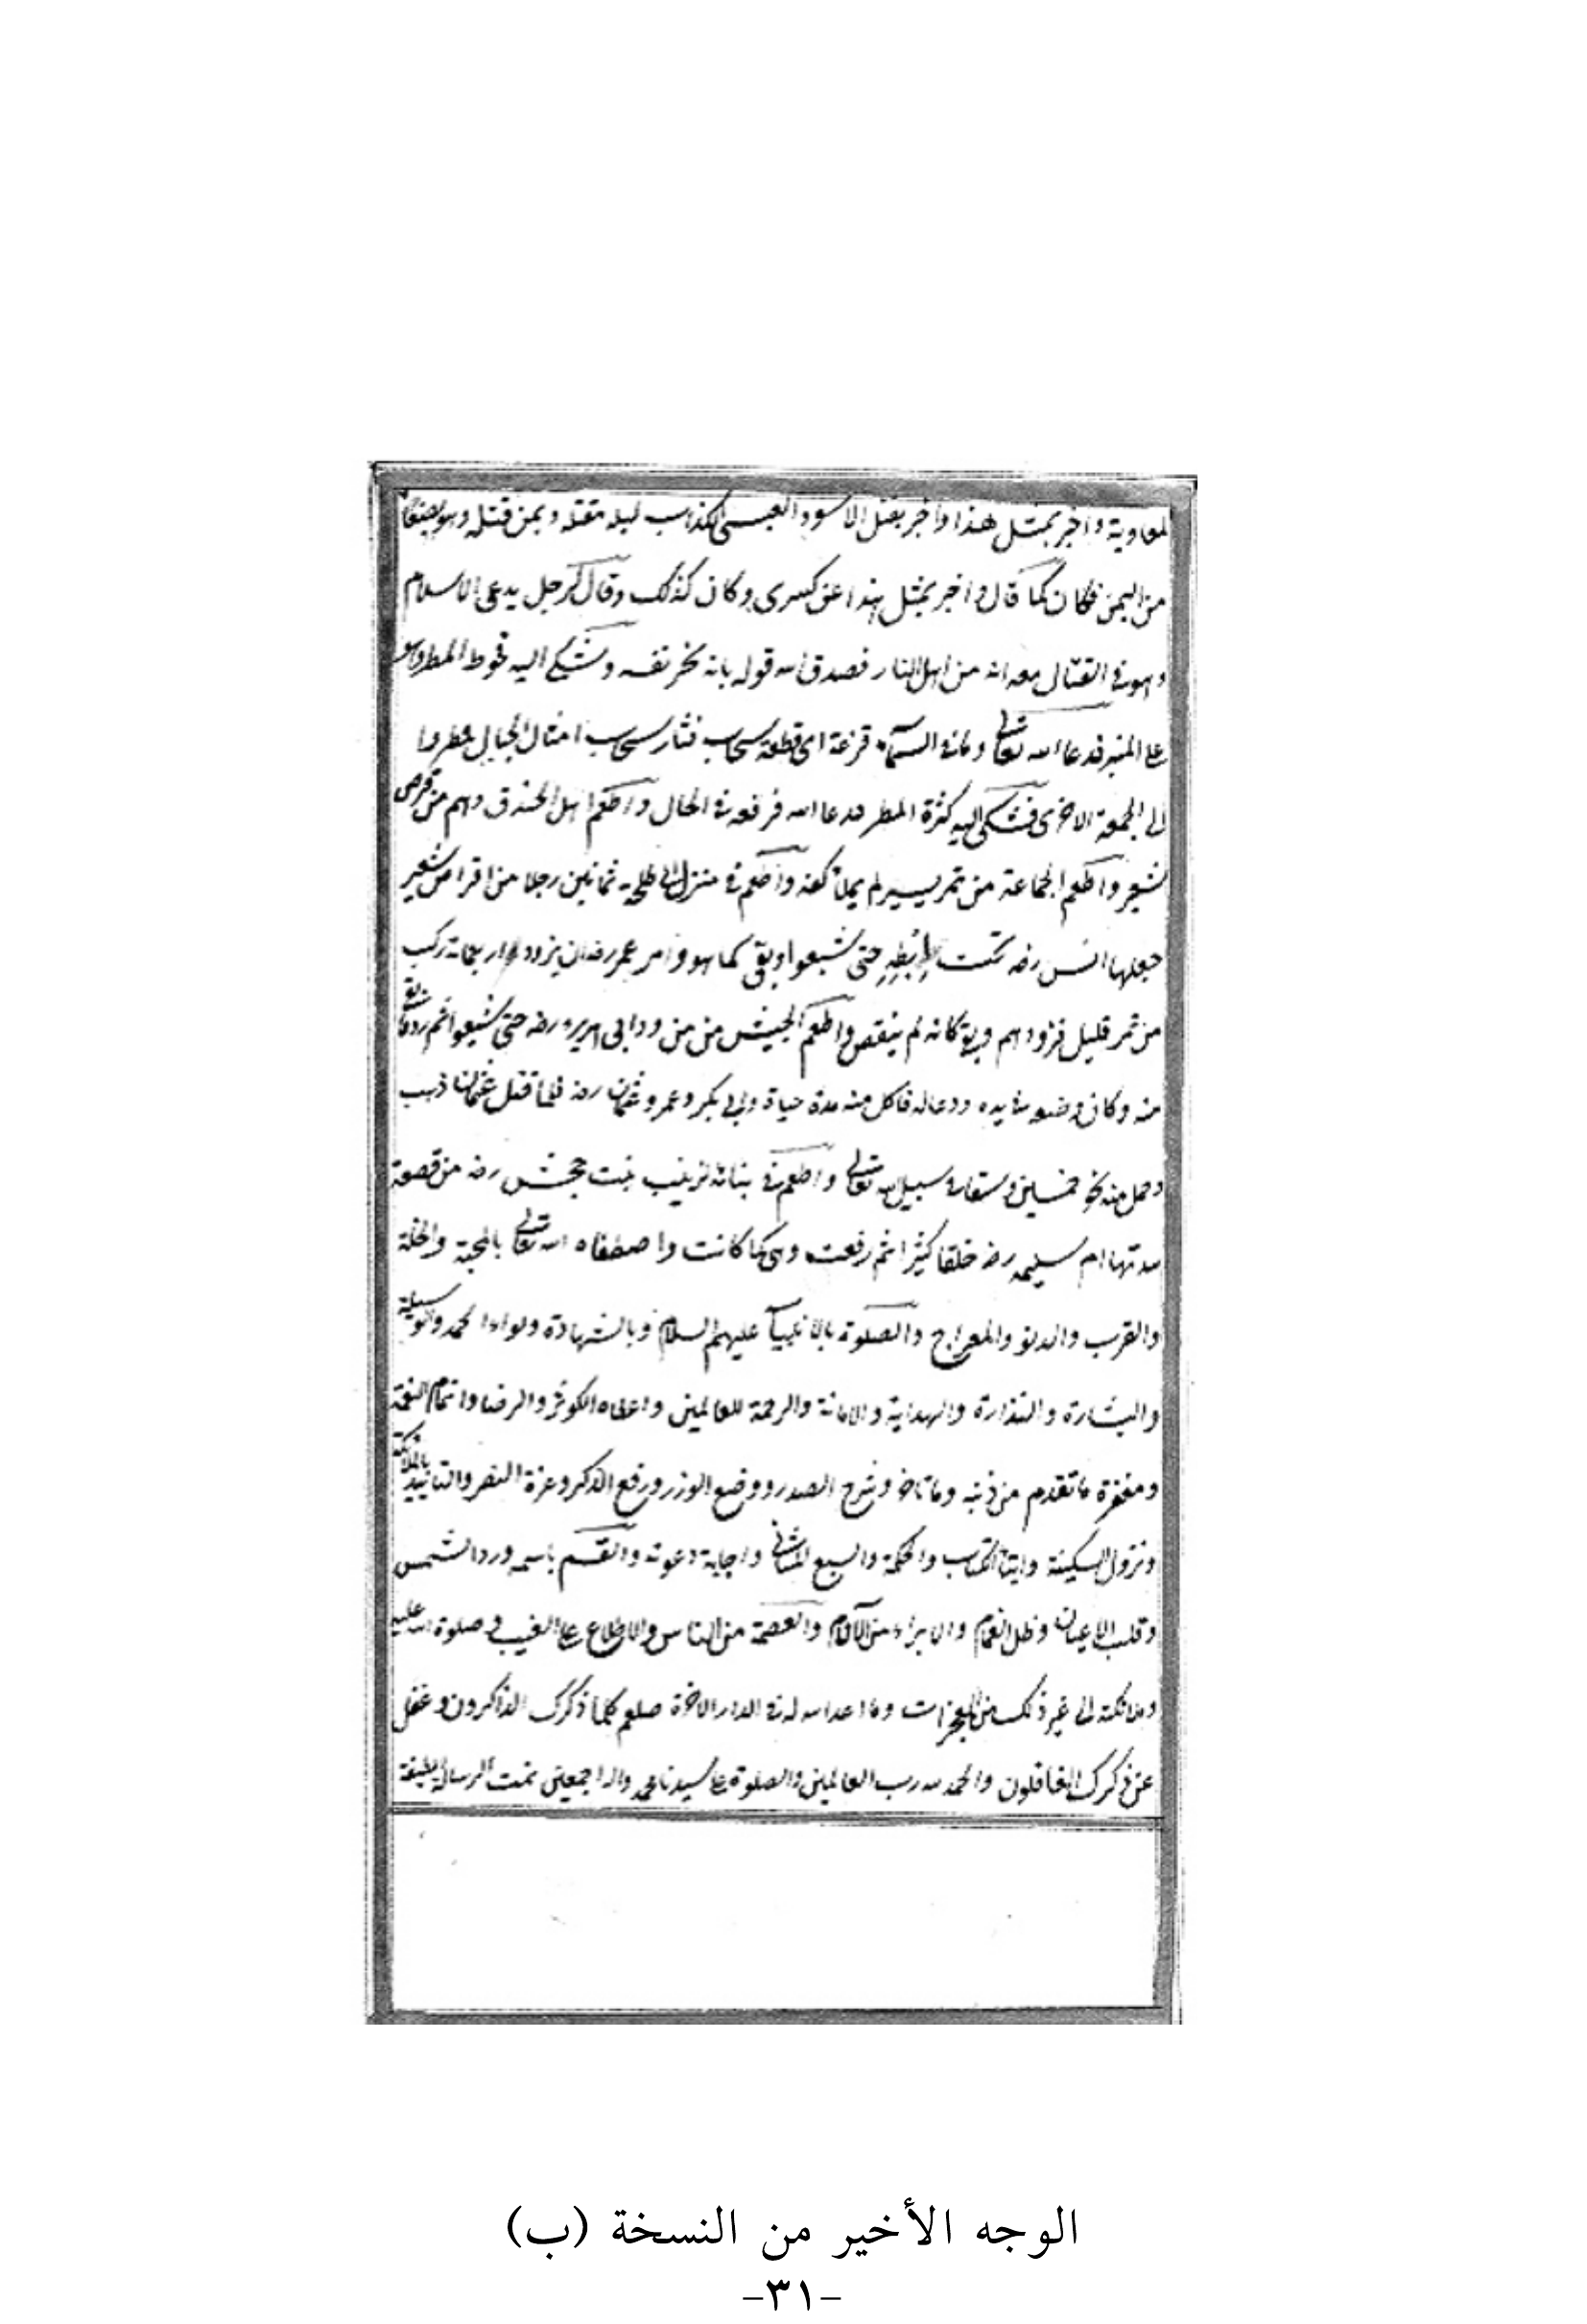 لمعاوية واخبر بمثل هذا واخبر بقتل الاسود العبسى الكذاب ليلة مقتله وبمن قتله وهو بصنعا
من اليمن فكان كما قال واخبر بمثل هذا عن كسرى وكان كذلك وقال لرجل يدعى الاسلام
وهو فى القتال معه انه من اهل النار فصدق الله قوله بانه نحر نفسه وشكى اليه قحوط المطر وهو
على المنبر فدعا الله تعالى وما فى السمآء قزعة اى قطعة سحاب فثار سحاب امثال الجبال فمطروا
الى الجمعة الاخرى فشكى اليه كثرة المطر فدعا الله فرفعه فى الحال واطعم اهل الخندق وهم من قرص
شعير واطعم الجماعة من تمر يسير لم يملأ كفه واطعم فى منزل ابى طلحة ثمانين رجلا من اقراص شعير
جعلها انس رضه تحت ابطه حتى شبعوا وبقى كما هو وامر عمر رضه ان يزود اربعمائة ركب
من تمر قليل فزودهم وبقى كانه لم ينقص واطعم الجيش من مزود ابى هريره رضه حتى شبعوا ثم رد ما بقى
منه وكان وضعه فى يده ودعا له فاكل منه مدة حياة وابى بكر وعمر وعثمان رضه فلما قتل عثمان ذهب
وحمل منه نحو خمسين وسقا فى سبيل الله تعالى واطعم فى بنائه لزينب بنت جحش رضه من قصعة
اهدتها ام سليم رضه خلقا كثيرا ثم رفعت وهى كما كانت واصطفاه الله تعالى بالمحبة والخلة
والقرب والدنو والمعراج والصلوة بالانبيآ عليهم السلام وبالشهادة ولواء الحمد والوسيلة
والبشارة والنذارة والهداية والامانة والرحمة للعالمين واعطاه الكوثر والرضا واتمام النعمة
ومغفرة ما تقدم من ذنبه وما تاخر وشرح الصدر ووضع الوزر ورفع الذكر وعزة النصر والتاييد بالملائكة
ونزول السكينة وايتآ الكتاب والحكمة والسبع المثانى واجابة دعوته والقسم باسمه ورد الشمس
وقلب الاعيان وظل الغمام والابراء من الآلام والعصمة من الناس والاطلاع على الغيب وصلوة الله عليه
وملائكته الى غير ذلك من المعجزات وما اعد الله له فى الدار الاخرة صلعم كلما ذكرك الذاكرون وغفل
عن ذكرك الغافلون والحمد لله رب العالمين والصلوة على سيدنا محمد واله اجمعين تمت الرسالة
الوجه الأخير من النسخة (ب)
-٣١-